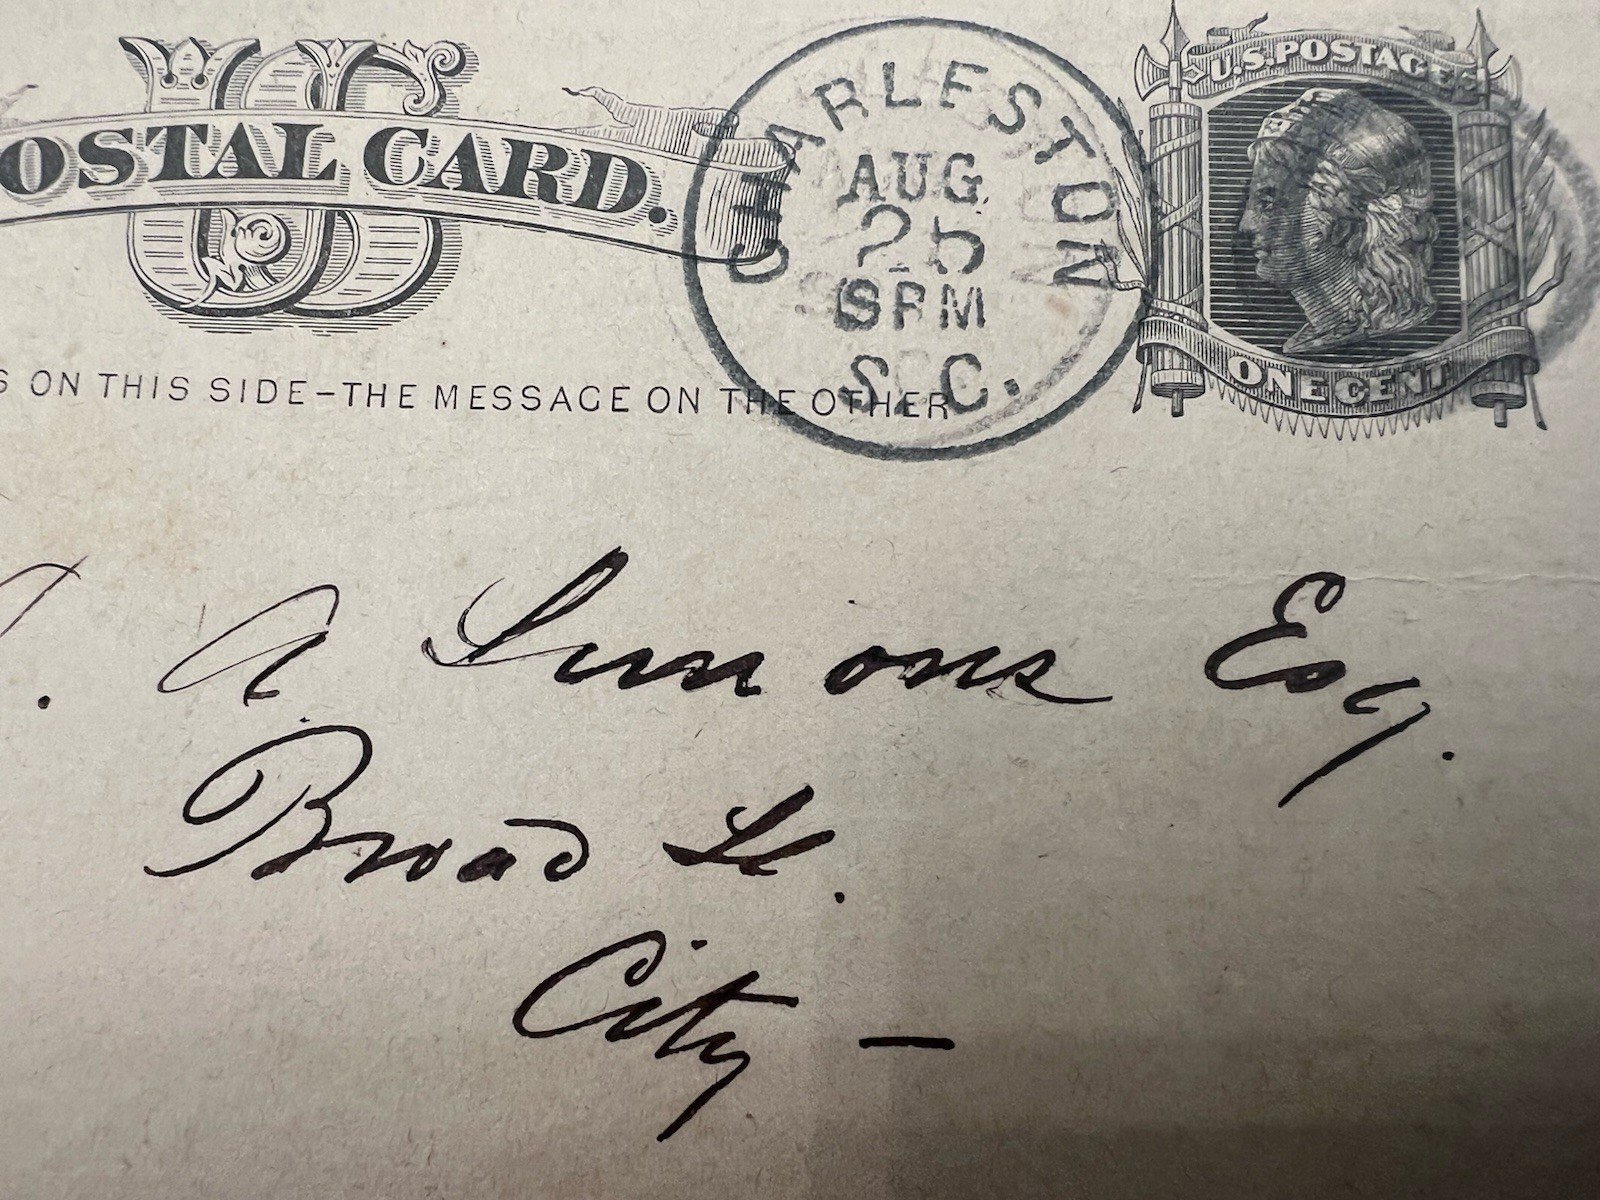 US
OSTAL CARD.
CHARLESTON
AUG
25
5 PM
S.C.
U.S. POSTAGE
ONE CENT
S ON THIS SIDE–THE MESSAGE ON THE OTHER
. A Simons Esq.
Broad St.
City –